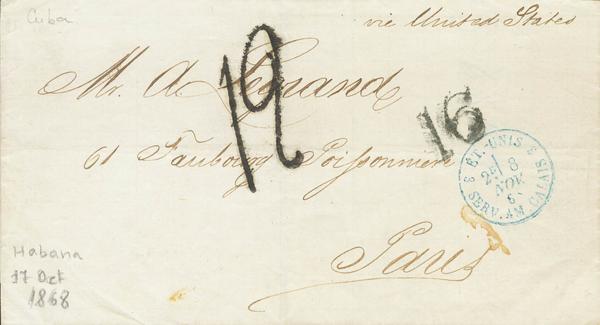 Cuba
via United States
Mr. A Legrand
12
16
61 Faubourg Poissonniere
3 ET.-UNIS 3
2E/ 8
NOV
6
SERV. AM. CALAIS
Paris
Habana
17 Oct
1868